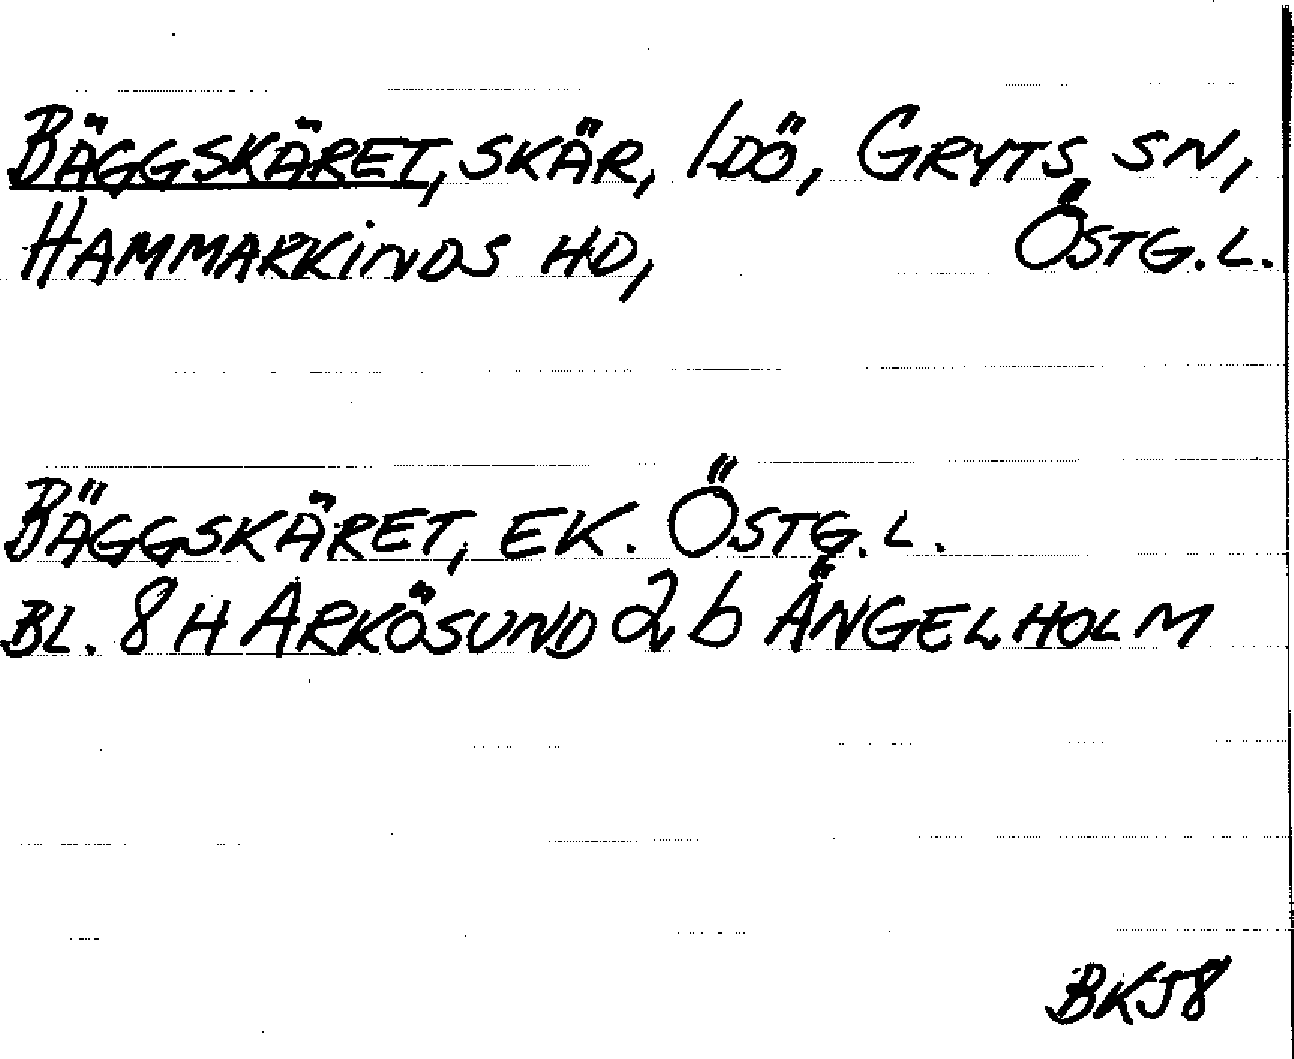 BÄGGSKÄRET, SKÄR, IDÖ, GRYTS SN,
HAMMARKINDS HD, ÖSTG.L.
BÄGGSKÄRET, EK. ÖSTG.L.
BL. 8H ARKÖSUND 2b ÄNGELHOLM
BKJ8